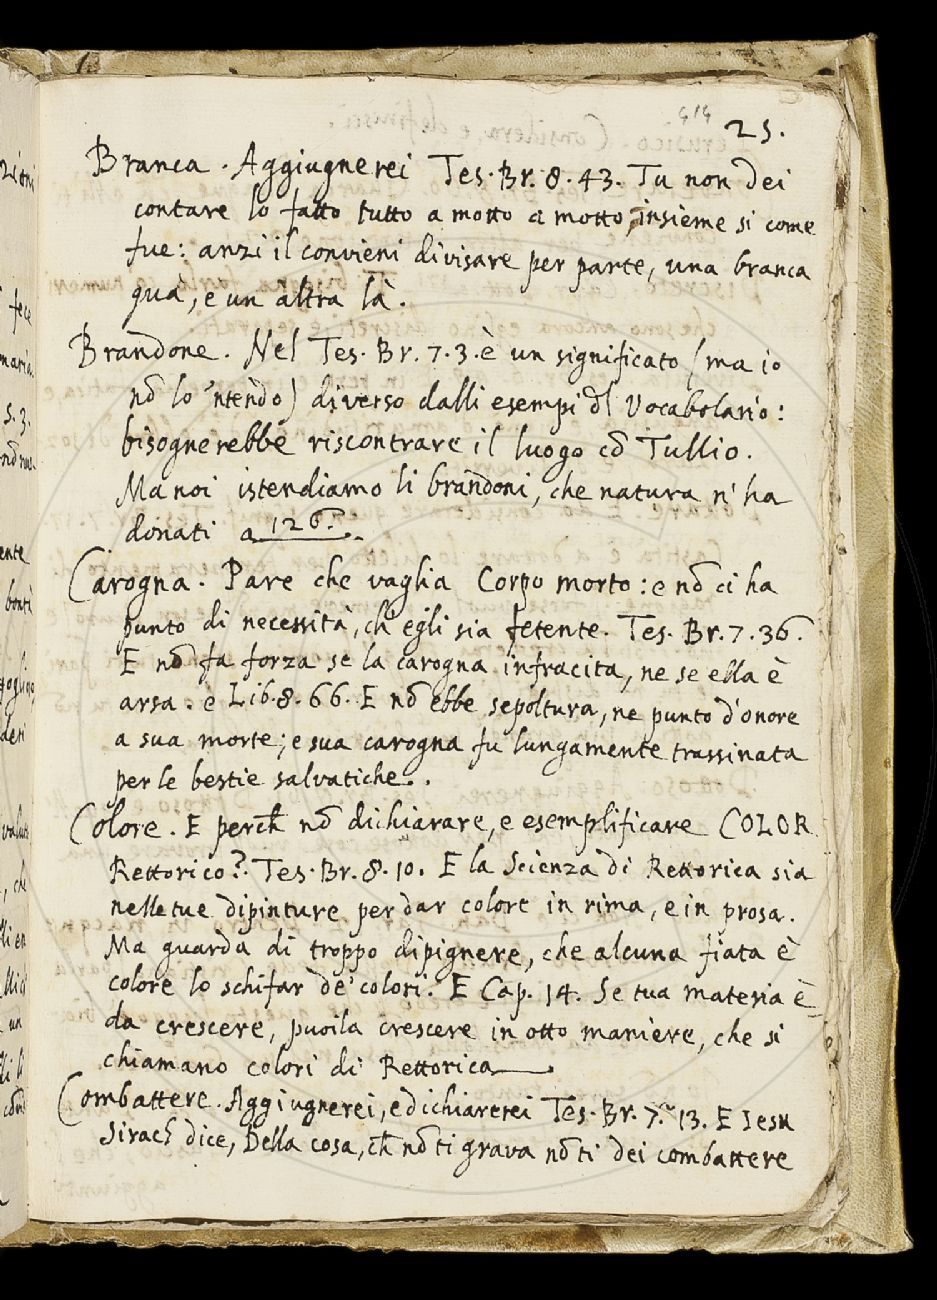 25.
Branca. Aggiugnerei Tes. Br. 8. 43. Tu non dei
contare lo fatto tutto a motto a motto, insieme si come
fue: anzi il convieni divisare per parte, una branca
quà, e un altra là.
Brandone. Nel Tes. Br. 7. 3. è un significato (ma io
nō lo 'ntēdo) diverso dalli esempi dl Vocabolario:
bisognerebbe riscontrare il luogo cō Tullio.
Ma noi istendiamo li brandoni, che natura n' ha
donati a 126.
Carogna. Pare che vaglia Corpo morto: e nō ci ha
punto di necessità, ch' egli sia fetente. Tes. Br. 7. 36.
E nō fa forza se la carogna infracita, ne se ella è
arsa. e Lib. 8. 66. E nō ebbe sepoltura, ne punto d'onore
a sua morte; e sua carogna fu lungamente trassinata
per le bestie salvatiche.
Colore. E perch̄ nō dichiarare, e esemplificare COLOR
Rettorico? Tes. Br. 8. 10. E la Scienza di Rettorica sia
nelle tue dipinture per dar colore in rima, e in prosa.
Ma guarda di troppo dipignere, che alcuna fiata è
colore lo schifar de' colori. E Cap. 14. Se tua materia è
da crescere, puoila crescere in otto maniere, che si
chiamano colori di Rettorica
Combattere. Aggiugnerei, e dichiarerei Tes. Br. 7. 13. E Iesu
Sirach dice, Della cosa, ch̄ nō ti grava nō ti dei combattere